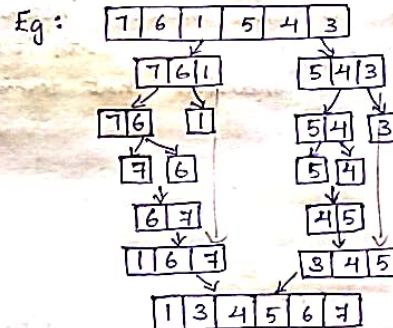 Eg : 7 6 1 5 4 3
7 6 1 5 4 3
7 6 1 5 4 3
7 6 5 4
6 7 4 5
1 6 7 3 4 5
1 3 4 5 6 7